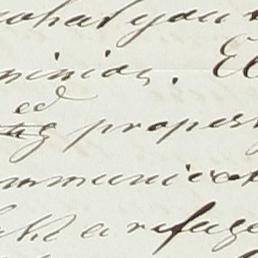 what you
minion. El
ed
propert
mmunicat
a refuge